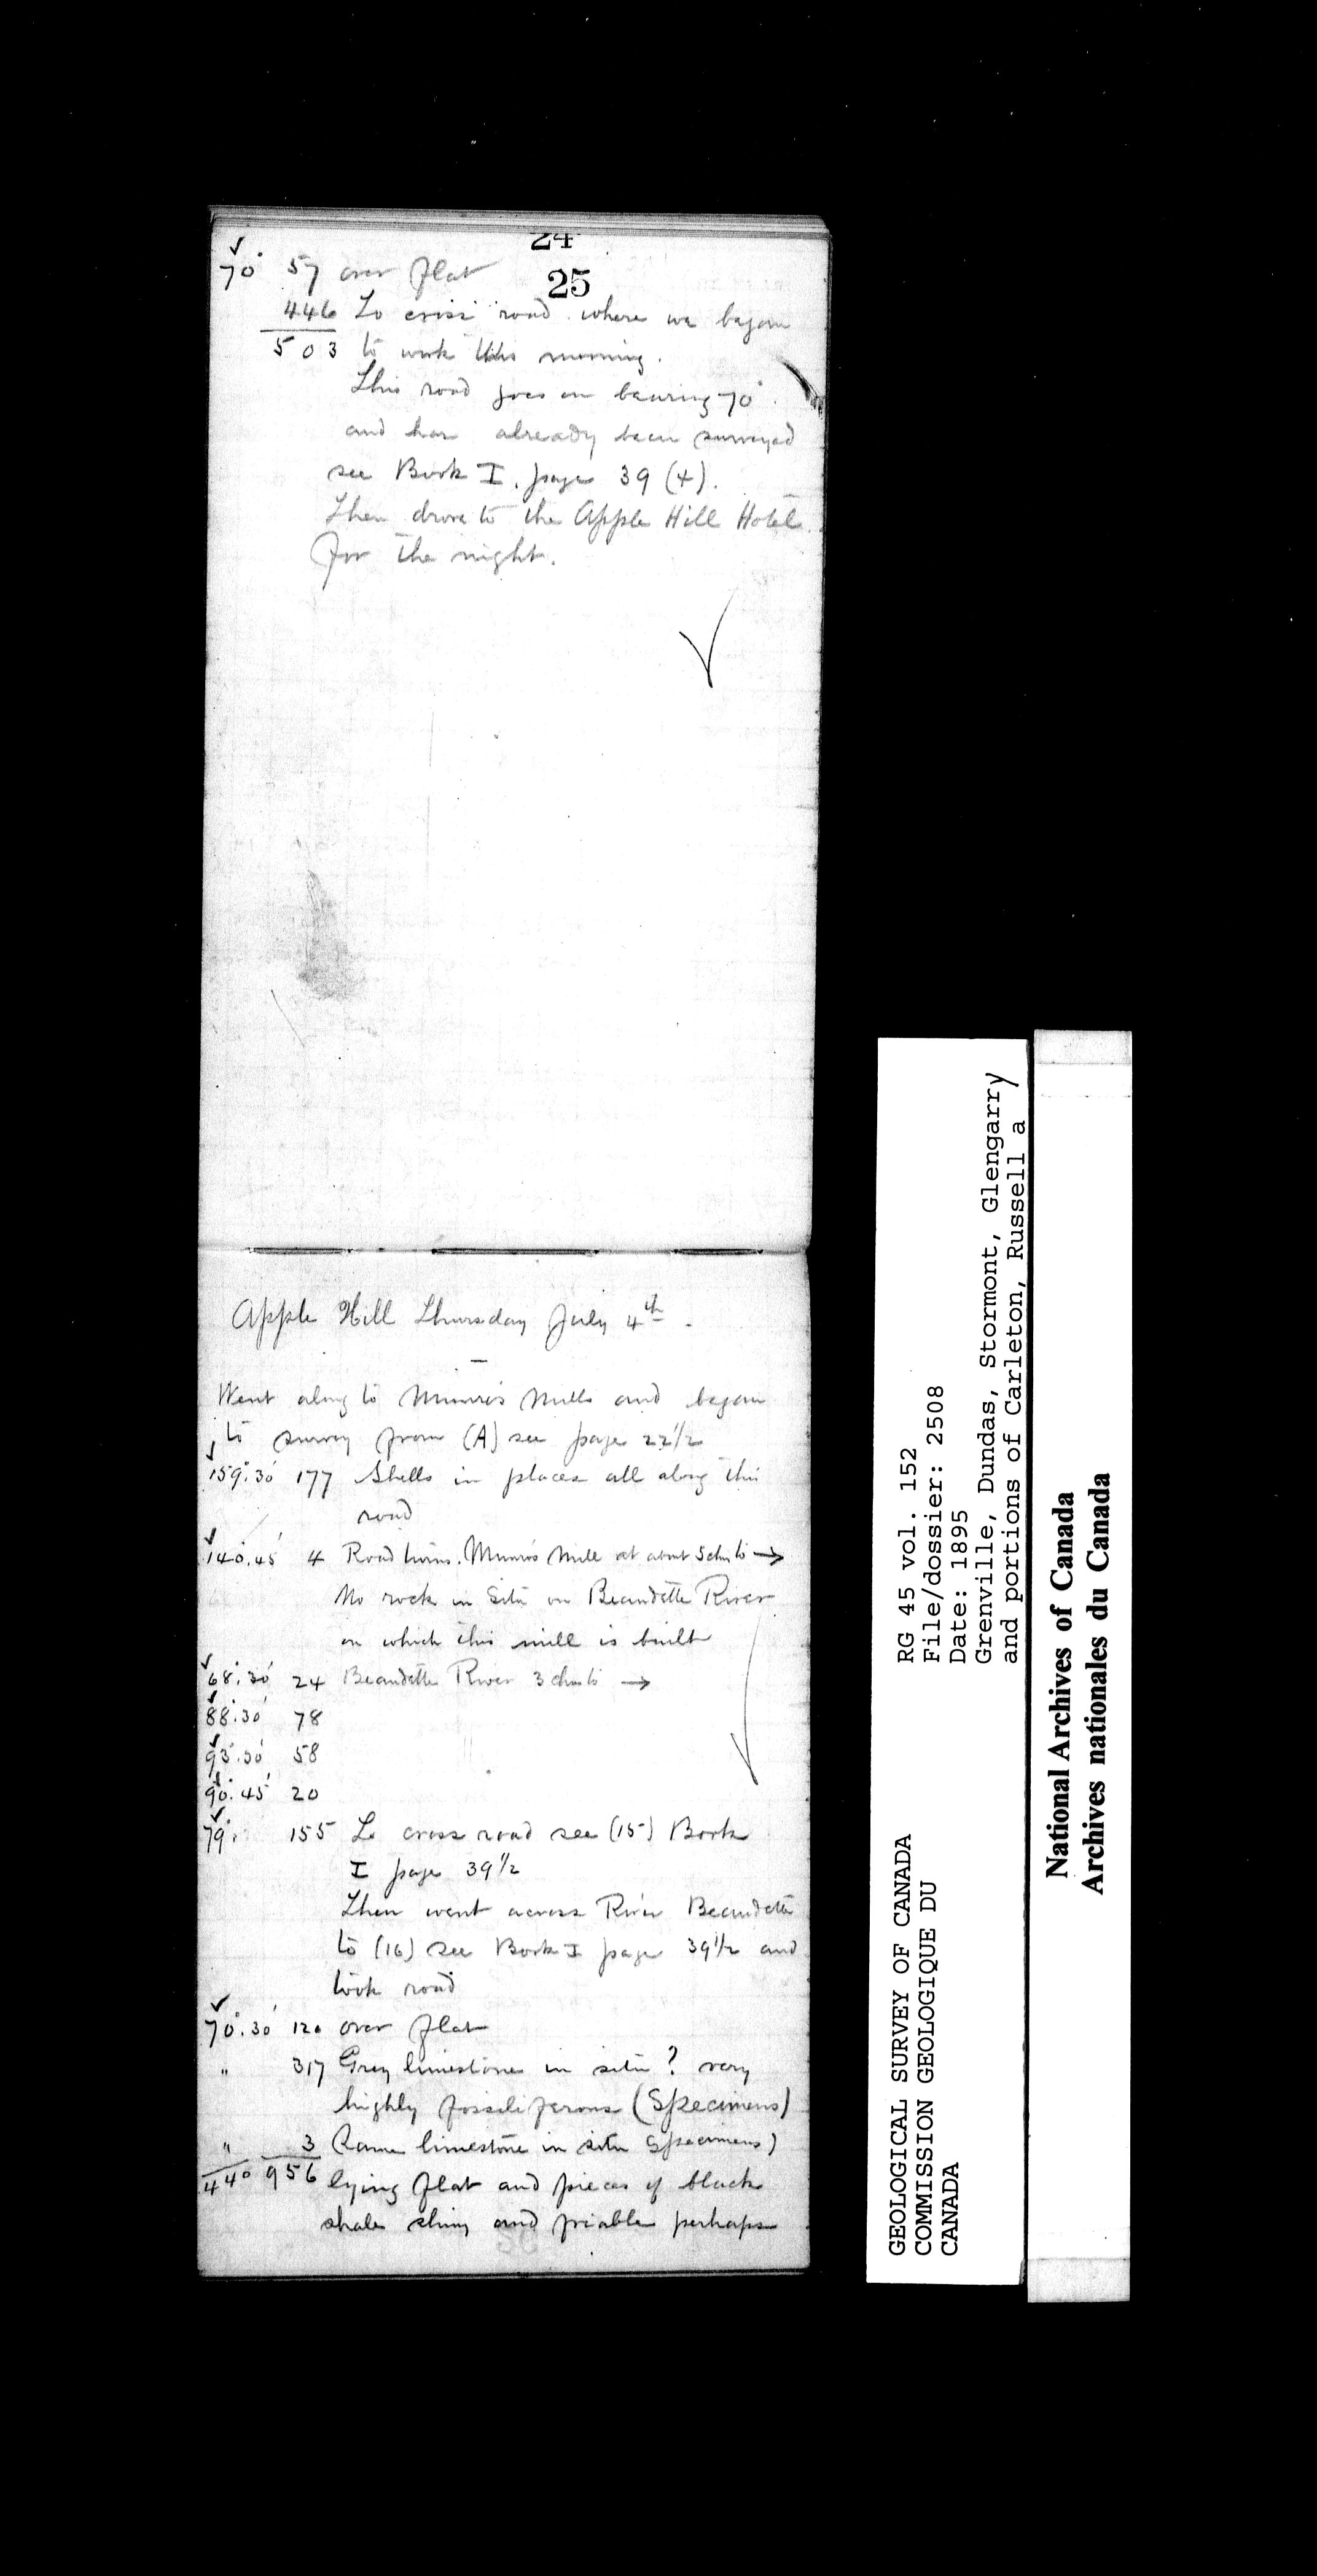 24
25
70° 57 over flat
446 To cross road where we began
503 to work this morning.
This road goes on bearing 70°.
and has already been surveyed
see Book I. page 39 (4).
Then drove to the Apple Hill Hotel.
for the night.
Apple Hill Thursday July 4th.
Went along to Munro's Mills and began
to survey from (A) see page 22 1/2
159°.30' 177 Shells in places all along this
road
140°.45' 4 Road turns. Munro's Mill at about 5 chs to →
No rock in situ on Beaudette River
on which this mill is built
68°.30' 24 Beaudette River 3 chs to →
88°.30' 78
93°.30' 58
90°.45' 20
79°. 155 To cross road see (15) Book
I page 39 1/2
Then went across River Beaudette
to (16) see Book I page 39 1/2 and
took road
70°.30' 120 over flat
" 317 Grey limestone in situ? very
highly fossiliferous (Specimens)
" 3 Same limestone in situ Specimens)
440 956 lying flat and pieces of black
shale shiny and friable perhaps
GEOLOGICAL SURVEY OF CANADA
COMMISSION GEOLOGIQUE DU
CANADA
RG 45 vol. 152
File/dossier: 2508
Date: 1895
Grenville, Dundas, Stormont, Glengarry
and portions of Carleton, Russell a
National Archives of Canada
Archives nationales du Canada